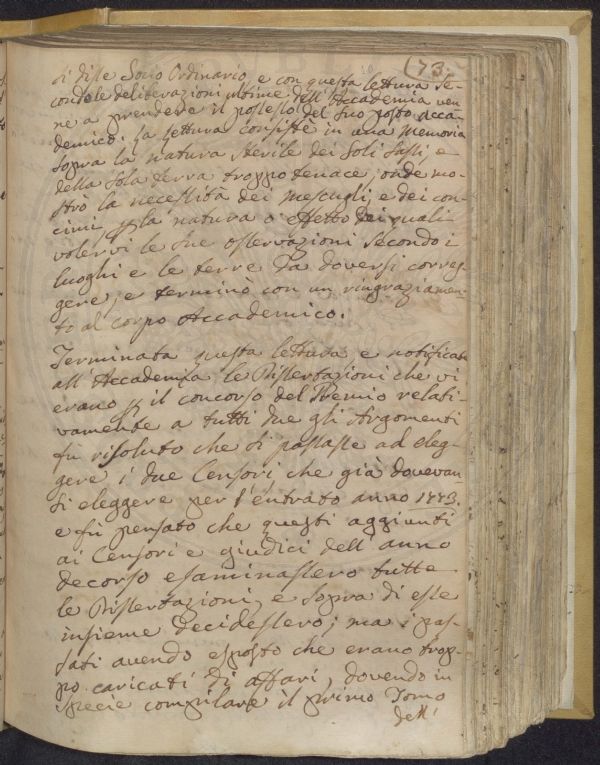 73.
si disse Socio Ordinario, e con questa lettura se-
condo le deliberazioni ultime dell'Accademia ven-
ne a prendere il possesso del suo posto Acca-
demico. La lettura consistè in una Memoria
sopra la natura sterile dei soli sassi, e
della sola terra troppo tenace; onde mo-
strò la necessità dei mescugli, e dei con-
cimi, p la natura o effetto dei quali
volervi le sue osservazioni secondo i
luoghi e le terre da doversi correg-
gere; e terminò con un ringraziamen-
to al corpo Accademico.
Terminata questa lettura e notificate
all'Accademia le Dissertazioni che vi
erano p il concorso del Premio relati-
vamente a tutti due gli Argomenti
fù risoluto che si passasse ad eleg-
gere i due Censori, che già dovevan-
si eleggere per l'entrato anno 1773.
e fù pensato che questi aggiunti
ai Censori e giudici dell'anno
decorso esaminassero tutte
le Dissertazioni, e sopra di esse
insieme decidessero; ma i pas-
sati avendo esposto che erano trop-
po caricati di affari, dovendo in
specie compilare il primo Tomo
dell'